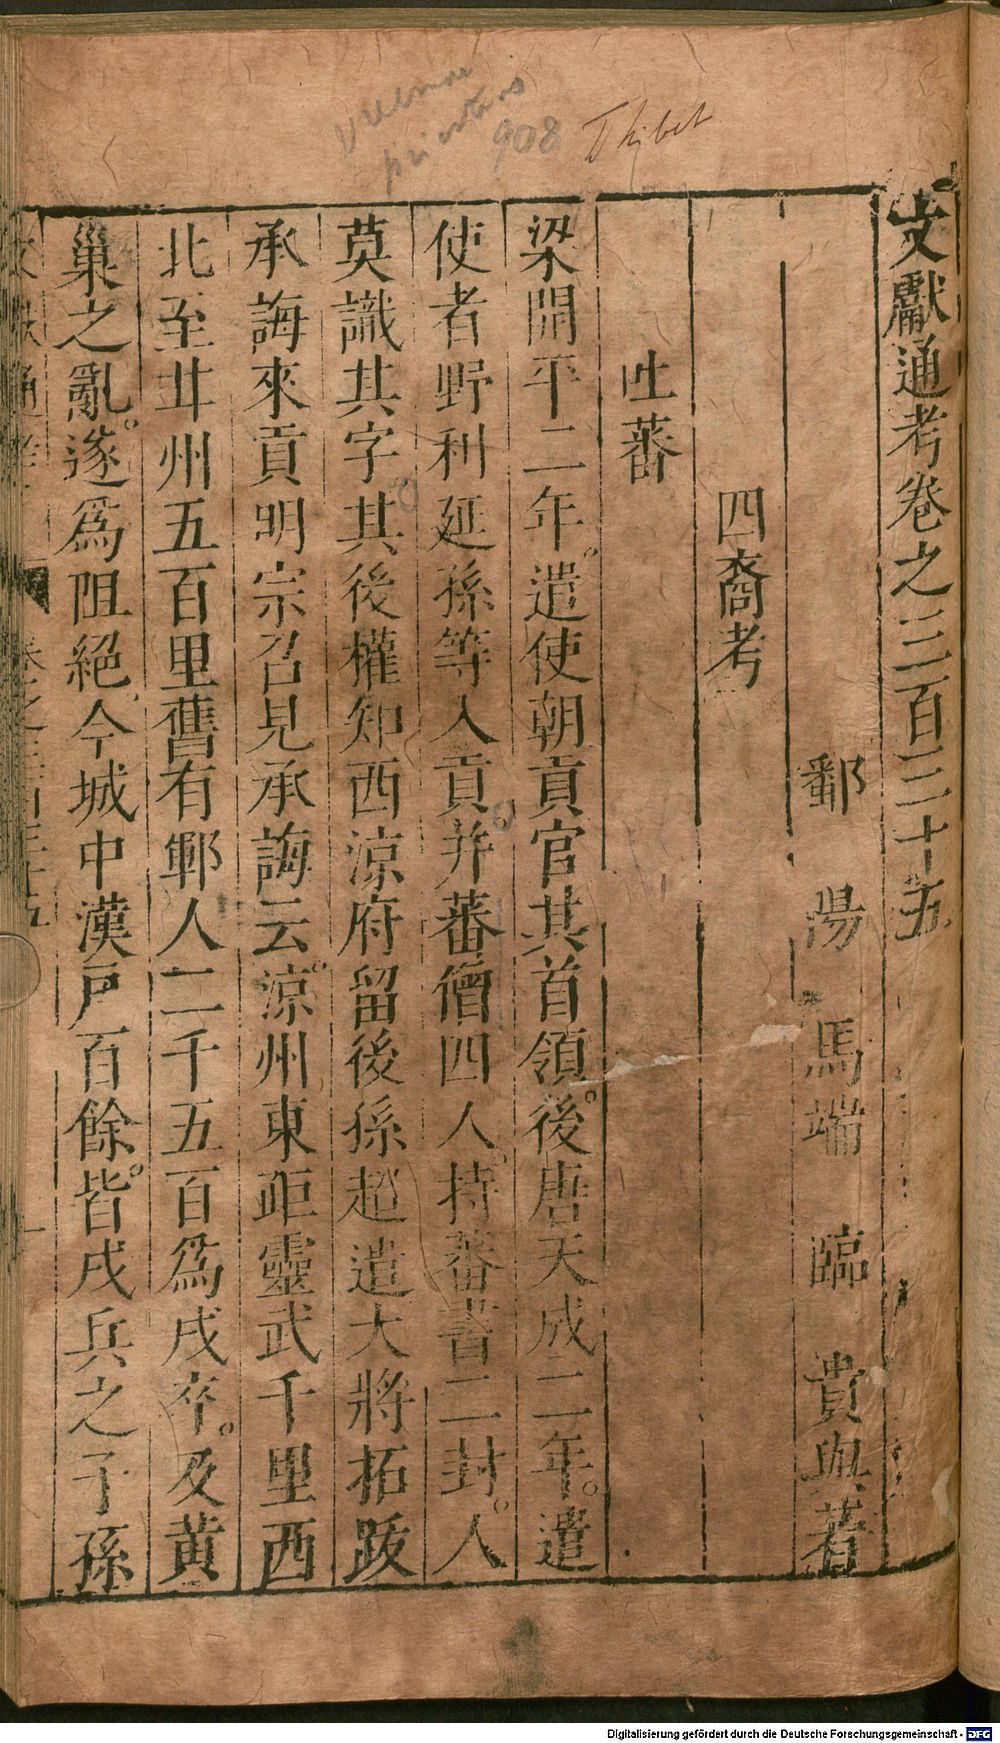 908 Thibet
文獻通考卷之三百三十五
鄱陽馬端臨貴與著
四裔考
吐蕃
梁開平二年。遣使朝貢官其首領。後唐天成二年。遣
使者野利延孫等入貢并蕃僧四人。持蕃書二封。人
莫識其字其後權知西涼府留後孫超遣大將拓跋
承誨來貢明宗召見承誨云。涼州東距靈武千里西
北至甘州五百里舊有鄆人二千五百爲戍卒。及黃
巢之亂。遂爲阻絕今城中漢戶百餘。皆戍兵之子孫
文獻通考 卷之三百三十五 一
Digitalisierung gefördert durch die Deutsche Forschungsgemeinschaft - DFG